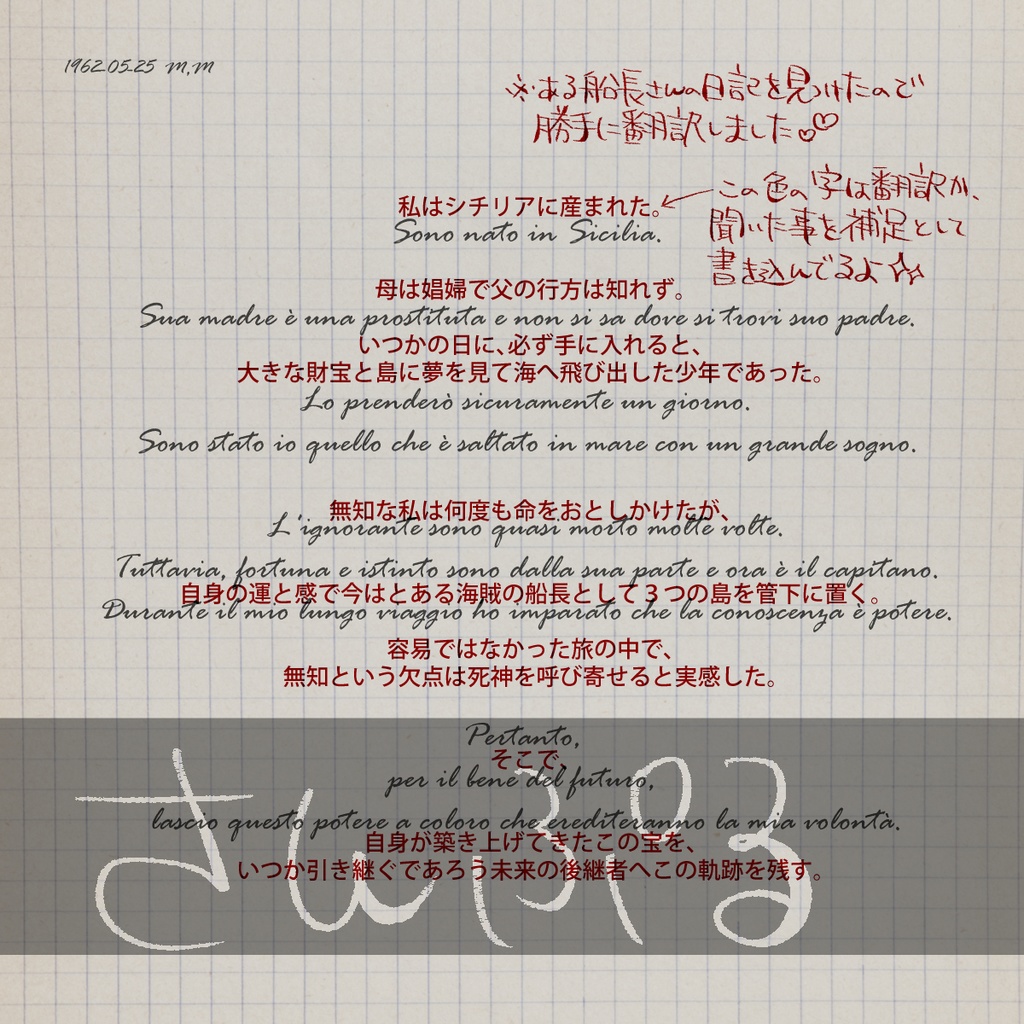 1962.05.25 m.m
※ある船長さんの日記を見つけたので
勝手に翻訳しました♡♡
この色の字は翻訳か、
聞いた事を補足として
書き込んでるよ☆☆
私はシチリアに産まれた。
Sono nato in Sicilia.
母は娼婦で父の行方は知れず。
Sua madre è una prostituta e non si sa dove si trovi suo padre.
いつかの日に、必ず手に入れると、
大きな財宝と島に夢を見て海へ飛び出した少年であった。
Lo prenderò sicuramente un giorno.
Sono stato io quello che è saltato in mare con un grande sogno.
無知な私は何度も命をおとしかけたが、
L'ignorante sono quasi morto molte volte.
Tuttavia, fortuna e istinto sono dalla sua parte e ora è il capitano.
自身の運と感で今はとある海賊の船長として３つの島を管下に置く。
Durante il mio lungo viaggio ho imparato che la conoscenza è potere.
容易ではなかった旅の中で、
無知という欠点は死神を呼び寄せると実感した。
Pertanto,
そこで、
per il bene del futuro,
lascio questo potere a coloro che erediteranno la mia volontà.
自身が築き上げてきたこの宝を、
いつか引き継ぐであろう未来の後継者へこの軌跡を残す。
さんぷる